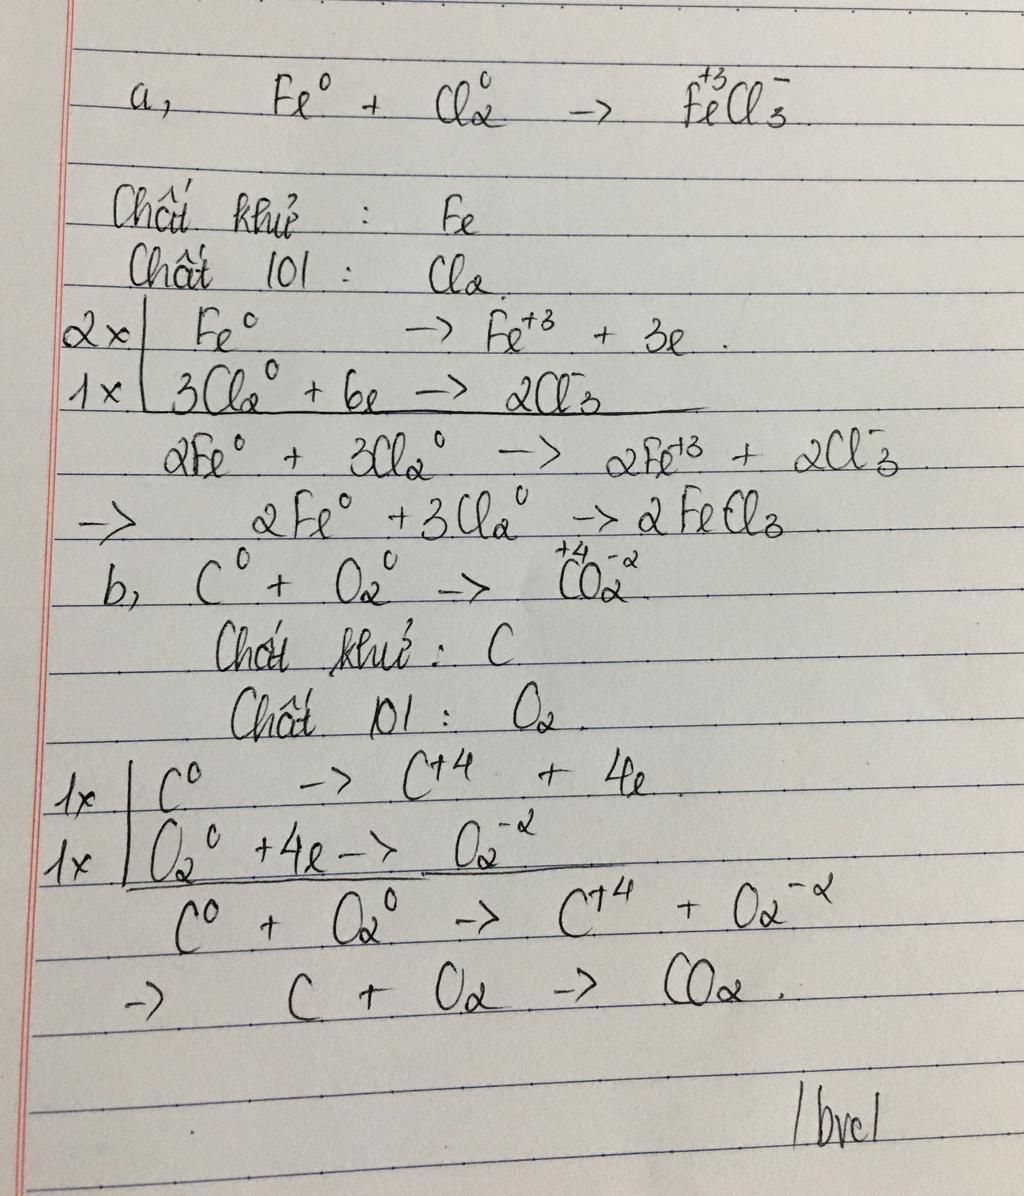 a, Fe⁰ + Cl₂⁰ -> Fe⁺³Cl₃⁻
Chất khử : Fe
Chất lol : Cl₂.
2x | Fe⁰ -> Fe⁺³ + 3e .
1x | 3Cl₂⁰ + 6e -> 2Cl₃⁻
2Fe⁰ + 3Cl₂⁰ -> 2Fe⁺³ + 2Cl₃⁻
-> 2Fe⁰ + 3Cl₂⁰ -> 2FeCl₃
b, C⁰ + O₂⁰ -> C⁺⁴O₂⁻²
Chất khử : C
Chất lol : O₂.
1x | C⁰ -> C⁺⁴ + 4e
1x | O₂⁰ + 4e -> O₂⁻²
C⁰ + O₂⁰ -> C⁺⁴ + O₂⁻²
-> C + O₂ -> CO₂ .
/bvcl